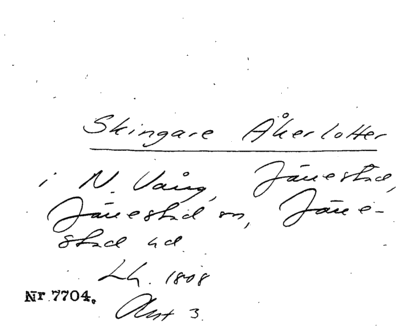 Skingare Åkerlotter
i N. Vång, Jänestad,
Jänestad sn, Jäne-
stad hd
Lh. 1808
Akt 3.
Nr 7704.